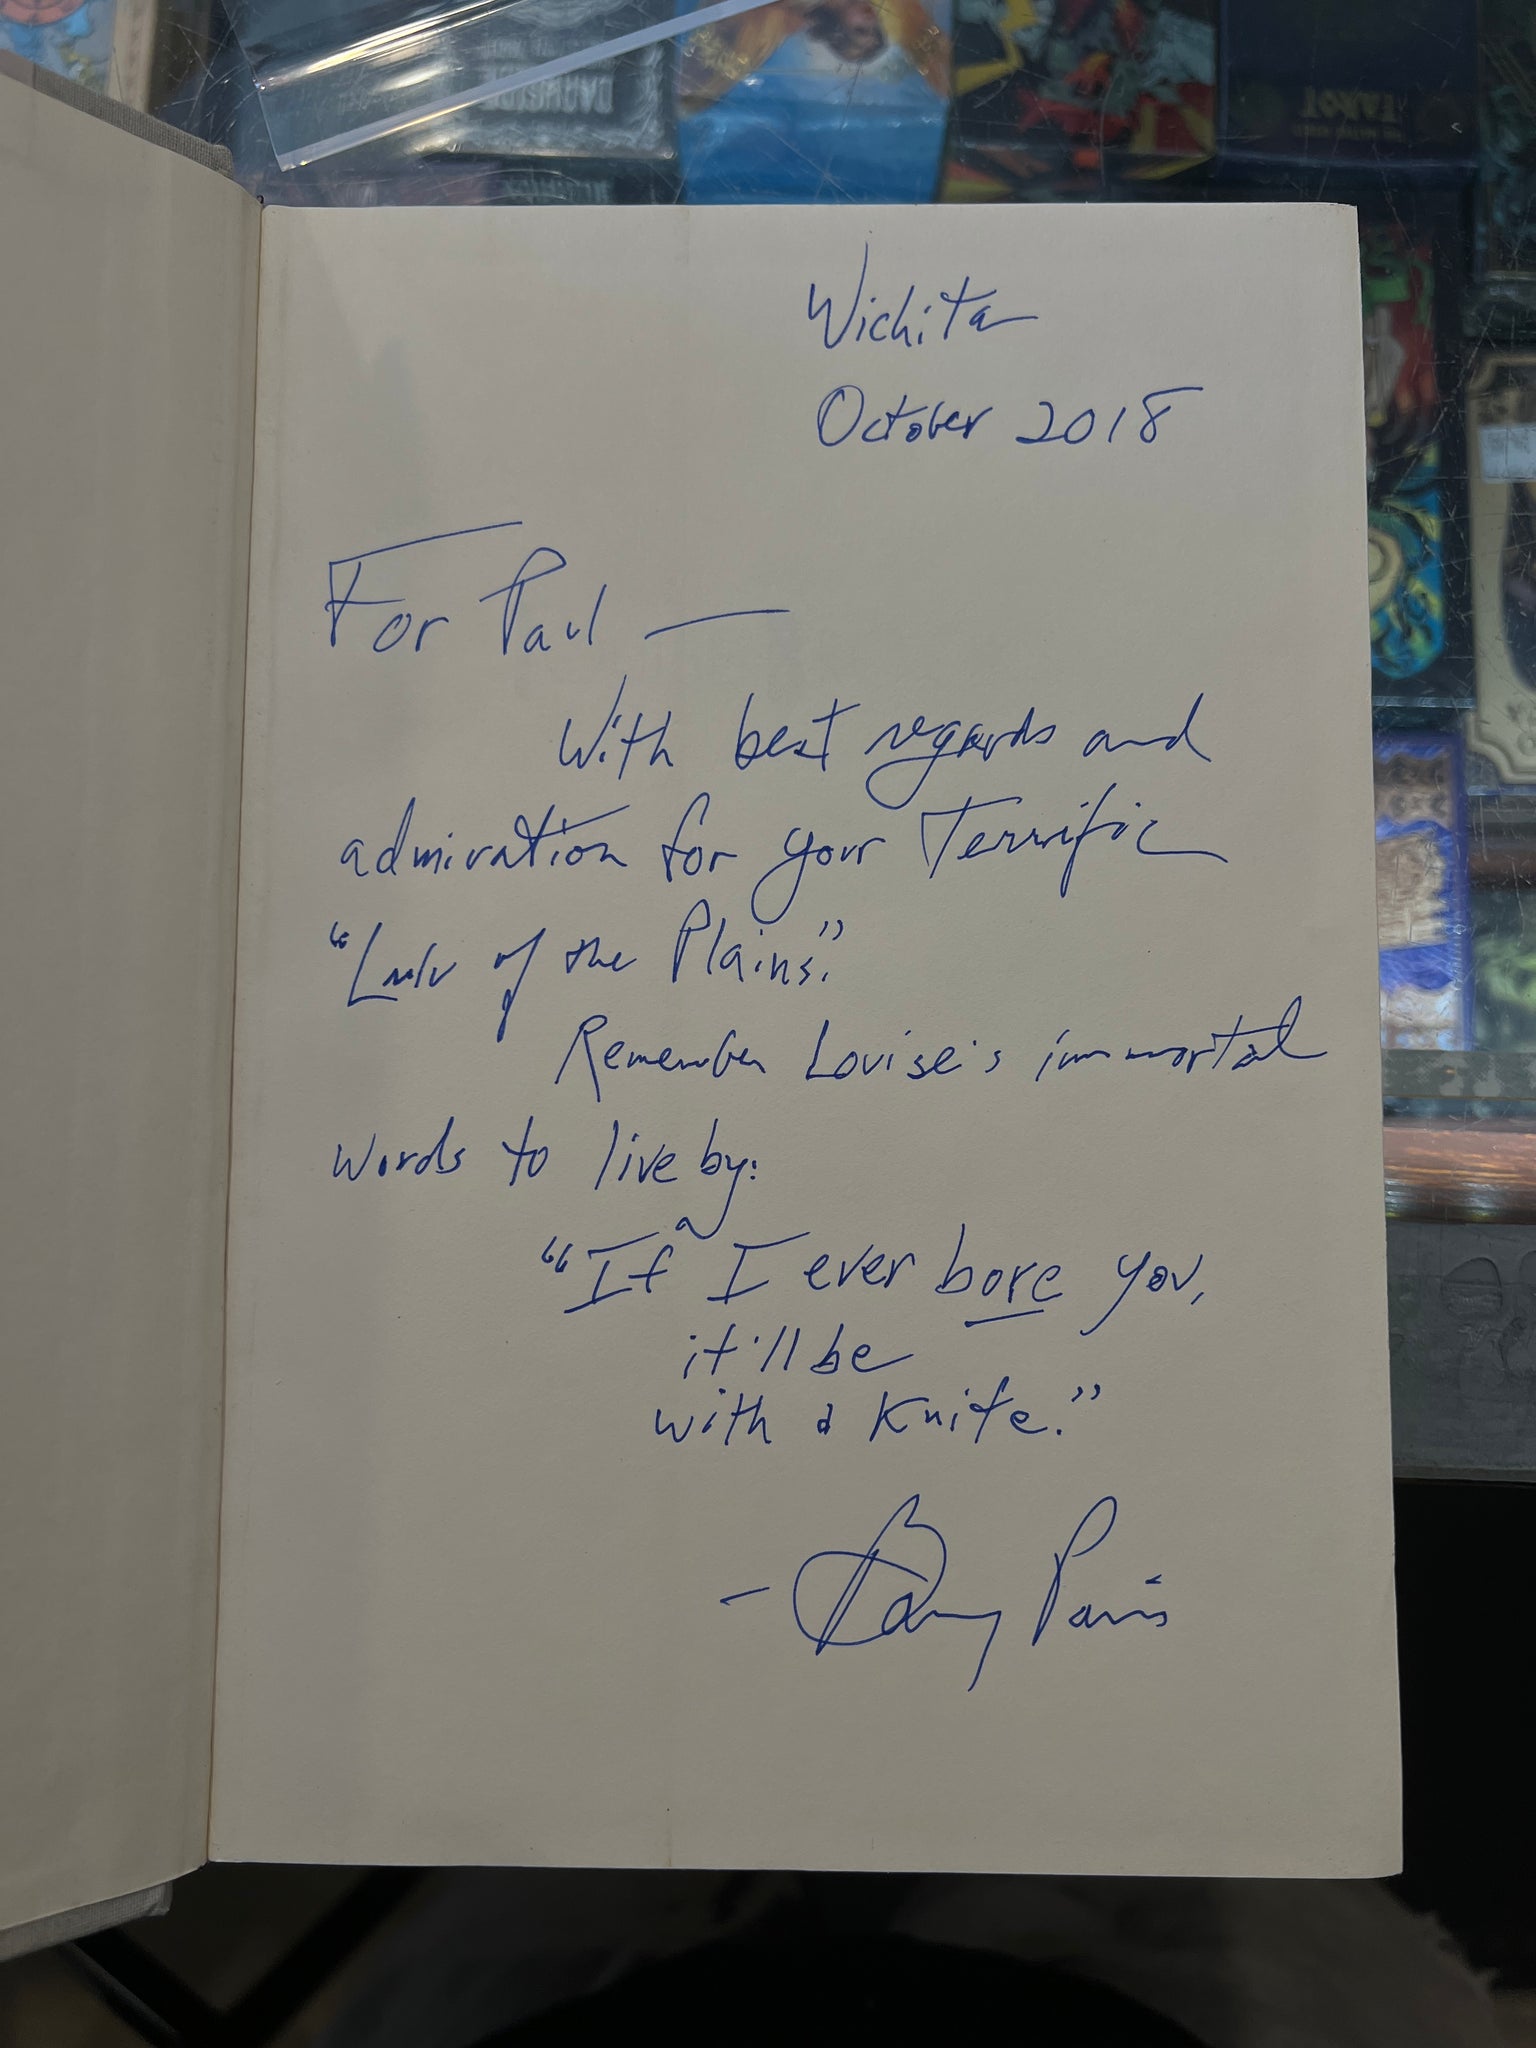 TAROT
Wichita
October 2018
For Paul —
With best regards and
admiration for your Terrific
"Lulu of the Plains."
Remember Louise's immortal
words to live by:
"If I ever bore you,
it'll be
with a knife."
- Barry Paris